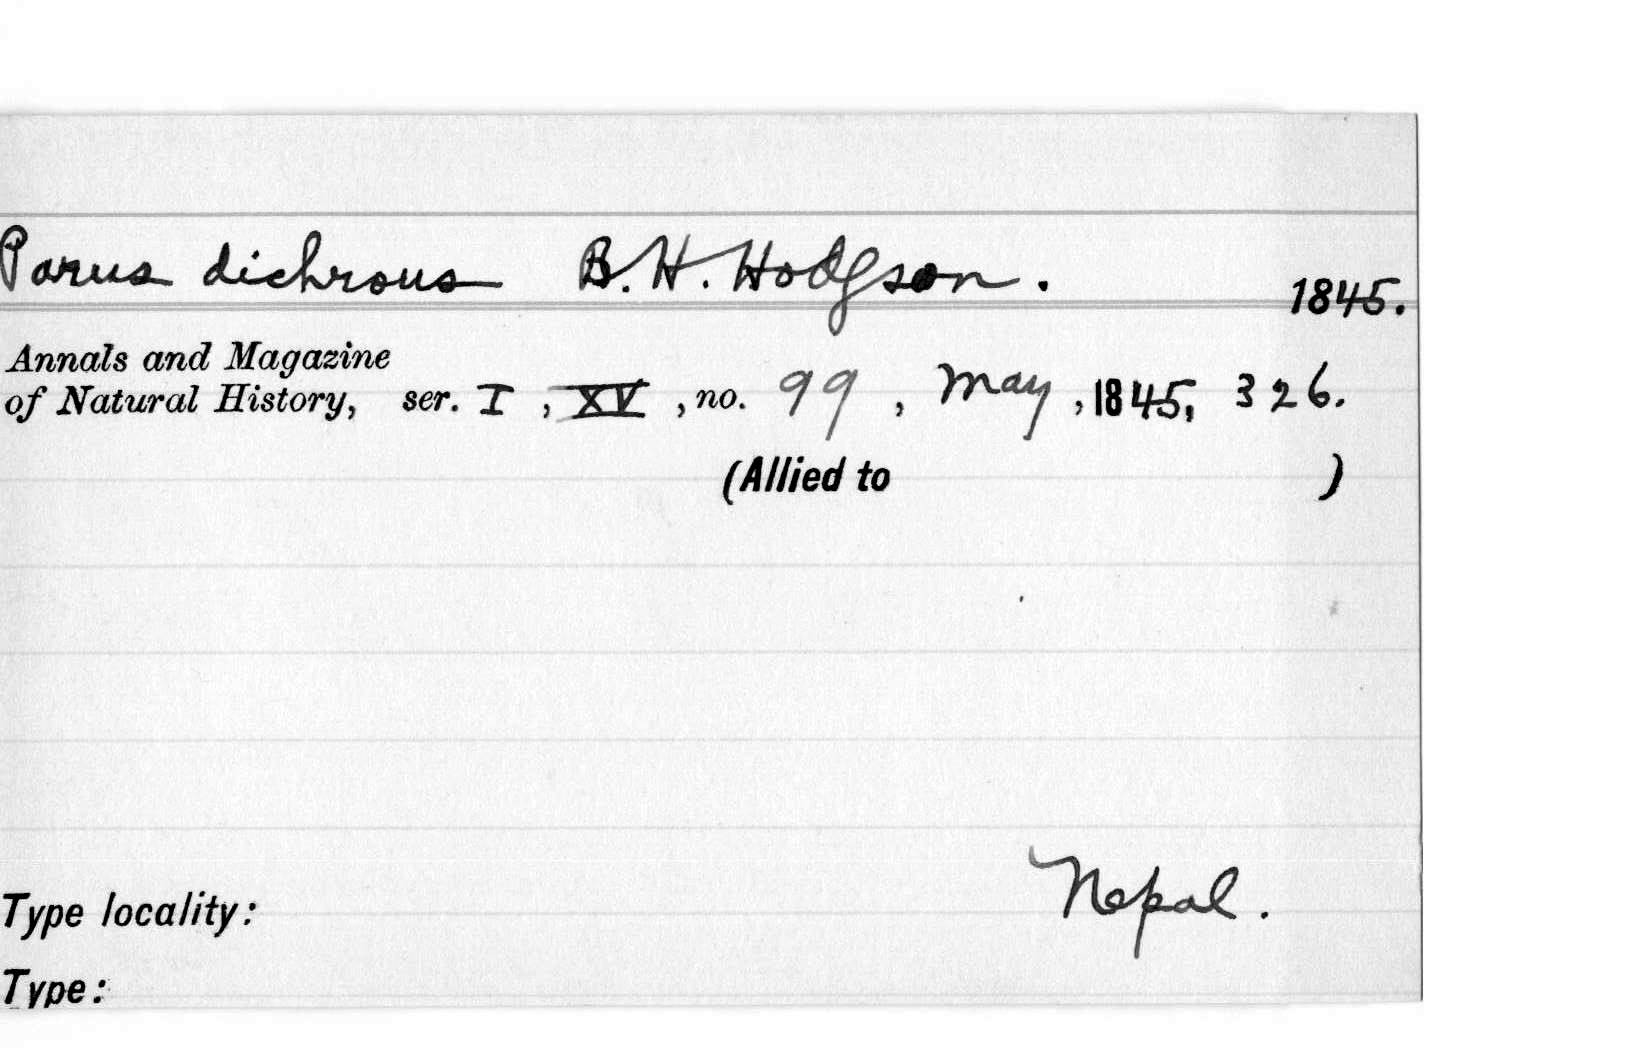 Parus dichrous B. H. Hodgson. 1845.
Annals and Magazine
of Natural History, ser. I, XV, no. 99, May, 1845, 326.
(Allied to )
Type locality: Nepal.
Type: